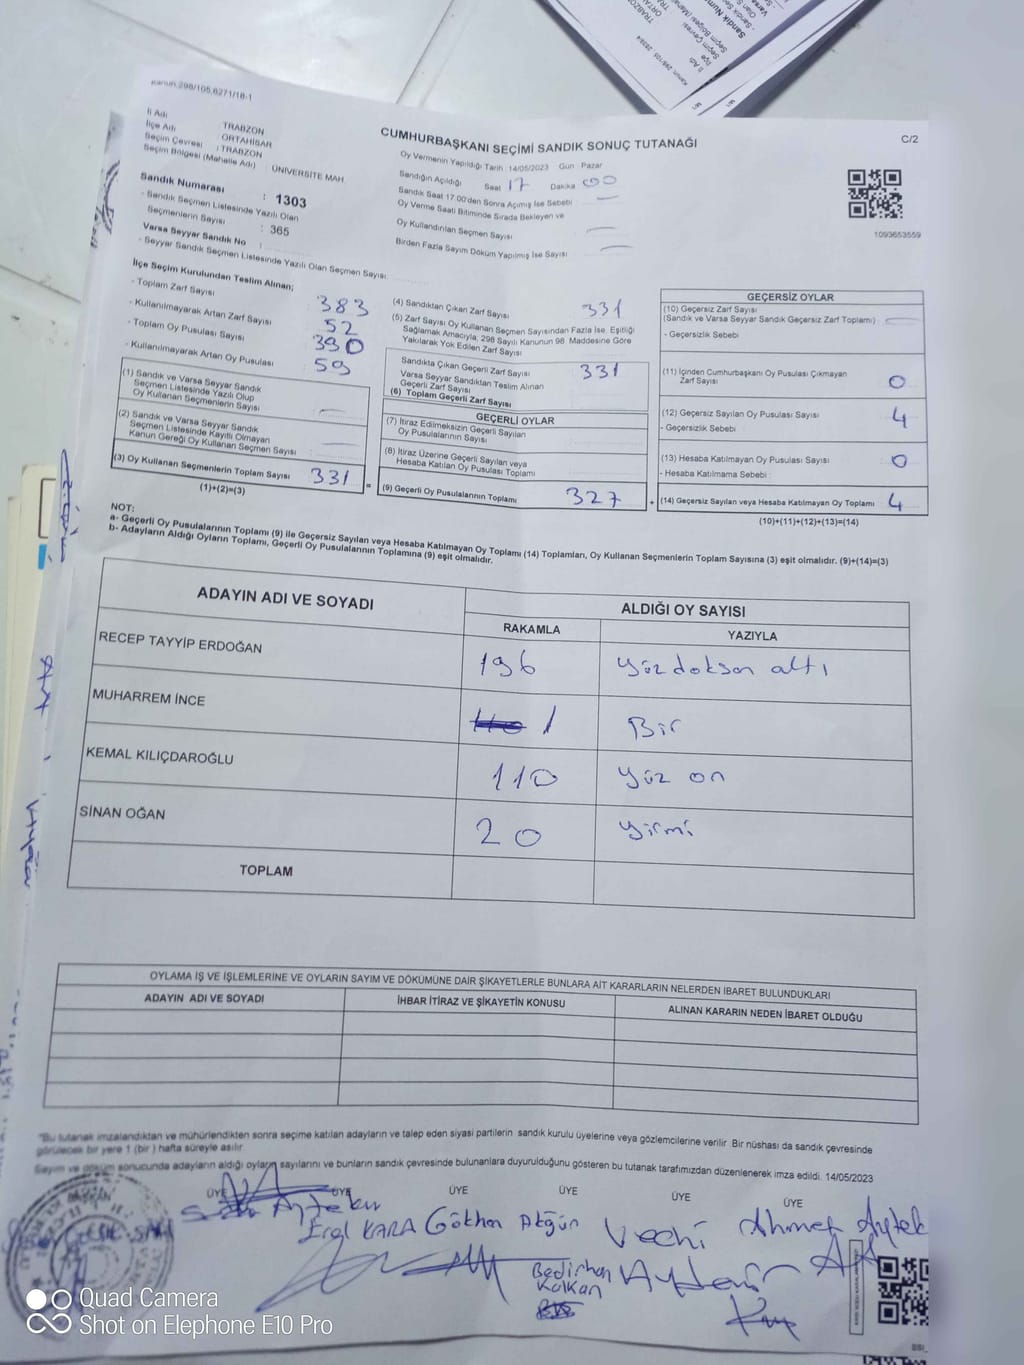 Kanun:298/105,6271/18-1
C/2
İl Adı : TRABZON
İlçe Adı : ORTAHİSAR
Seçim Çevresi : TRABZON
Seçim Bölgesi (Mahelle Adı) : ÜNİVERSİTE MAH.
Sandık Numarası : 1303
- Sandık Seçmen Listesinde Yazılı Olan
Seçmenlerin Sayısı : 365
Varsa Seyyar Sandık No :
- Seyyar Sandık Seçmen Listesinde Yazılı Olan Seçmen Sayısı:
CUMHURBAŞKANI SEÇİMİ SANDIK SONUÇ TUTANAĞI
Oy Vermenin Yapıldığı Tarih : 14/05/2023 Gün : Pazar
Sandığın Açıldığı Saat 17 Dakika 00
Sandık Saat 17.00'den Sonra Açımış İse Sebebi
Oy Verme Saati Bitiminde Sırada Bekleyen ve
Oy Kullandırılan Seçmen Sayısı
Birden Fazla Sayım Döküm Yapılmış İse Sayısı
1093653559
İlçe Seçim Kurulundan Teslim Alınan;
- Toplam Zarf Sayısı 383
- Kullanılmayarak Artan Zarf Sayısı 52
- Toplam Oy Pusulası Sayısı 390
- Kullanılmayarak Artan Oy Pusulası 59
(1) Sandık ve Varsa Seyyar Sandık
Seçmen Listesinde Yazılı Olup
Oy Kullanan Seçmenlerin Sayısı
(2) Sandık ve Varsa Seyyar Sandık
Seçmen Listesinde Kayıtlı Olmayan
Kanun Gereği Oy Kullanan Seçmen Sayısı
(3) Oy Kullanan Seçmenlerin Toplam Sayısı 331 =
(1)+(2)=(3)
(4) Sandıktan Çıkan Zarf Sayısı 331
(5) Zarf Sayısı Oy Kullanan Seçmen Sayısından Fazla İse, Eşitliği
Sağlamak Amacıyla, 298 Sayılı Kanunun 98. Maddesine Göre
Yakılarak Yok Edilen Zarf Sayısı
Sandıkta Çıkan Geçerli Zarf Sayısı 331
Varsa Seyyar Sandıktan Teslim Alınan
Geçerli Zarf Sayısı
(6) Toplam Geçerli Zarf Sayısı
GEÇERLİ OYLAR
(7) İtiraz Edilmeksizin Geçerli Sayılan
Oy Pusulalarının Sayısı
(8) İtiraz Üzerine Geçerli Sayılan veya
Hesaba Katılan Oy Pusulası Toplamı
(9) Geçerli Oy Pusulalarının Toplamı 327 +
GEÇERSİZ OYLAR
(10) Geçersiz Zarf Sayısı
(Sandık ve Varsa Seyyar Sandık Geçersiz Zarf Toplamı)
- Geçersizlik Sebebi
(11) İçinden Cumhurbaşkanı Oy Pusulası Çıkmayan
Zarf Sayısı 0
(12) Geçersiz Sayılan Oy Pusulası Sayısı 4
- Geçersizlik Sebebi
(13) Hesaba Katılmayan Oy Pusulası Sayısı 0
- Hesaba Katılmama Sebebi
(14) Geçersiz Sayılan veya Hesaba Katılmayan Oy Toplamı 4
(10)+(11)+(12)+(13)=(14)
NOT:
a- Geçerli Oy Pusulalarının Toplamı (9) ile Geçersiz Sayılan veya Hesaba Katılmayan Oy Toplamı (14) Toplamları, Oy Kullanan Seçmenlerin Toplam Sayısına (3) eşit olmalıdır. (9)+(14)=(3)
b- Adayların Aldığı Oyların Toplamı, Geçerli Oy Pusulalarının Toplamına (9) eşit olmalıdır.
ADAYIN ADI VE SOYADI ALDIĞI OY SAYISI
RAKAMLA YAZIYLA
RECEP TAYYİP ERDOĞAN 196 yüzdoksan altı
MUHARREM İNCE 1 Bir
KEMAL KILIÇDAROĞLU 110 yüz on
SİNAN OĞAN 20 yirmi
TOPLAM
OYLAMA İŞ VE İŞLEMLERİNE VE OYLARIN SAYIM VE DÖKÜMÜNE DAİR ŞİKAYETLERLE BUNLARA AİT KARARLARIN NELERDEN İBARET BULUNDUKLARI
ADAYIN ADI VE SOYADI İHBAR İTİRAZ VE ŞİKAYETİN KONUSU ALINAN KARARIN NEDEN İBARET OLDUĞU
"Bu tutanak imzalandıktan ve mühürlendikten sonra seçime katılan adayların ve talep eden siyasi partilerin sandık kurulu üyelerine veya gözlemcilerine verilir. Bir nüshası da sandık çevresinde
görülecek bir yere 1 (bir) hafta süreyle asılır.
Sayım ve döküm sonucunda adayların aldığı oyların sayılarını ve bunların sandık çevresinde bulunanlara duyurulduğunu gösteren bu tutanak tarafımızdan düzenlenerek imza edildi. 14/05/2023
ÜYE ÜYE ÜYE ÜYE ÜYE ÜYE
Aytekin Erol KARA Gökhan Akgün Vechi Ahmet Aytek
Bedirhan Aydemir
Kalkan
Quad Camera
Shot on Elephone E10 Pro